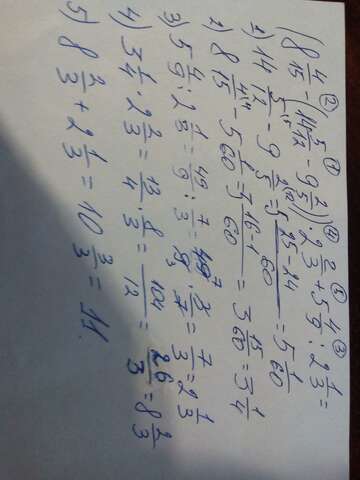 (8 4/15 - (14 5/12 - 9 2/5)) · 2 2/3 + 5 4/9 : 2 1/3 =
1) 14 5/12 - 9 2/5 = 5 (25-24)/60 = 5 1/60
2) 8 4/15 - 5 1/60 = 3 (16-1)/60 = 3 15/60 = 3 1/4
3) 5 4/9 : 2 1/3 = 49/9 : 7/3 = 49/9 · 3/7 = 7/3 = 2 1/3
4) 3 1/4 · 2 2/3 = 13/4 · 8/3 = 104/12 = 26/3 = 8 2/3
5) 8 2/3 + 2 1/3 = 10 3/3 = 11.